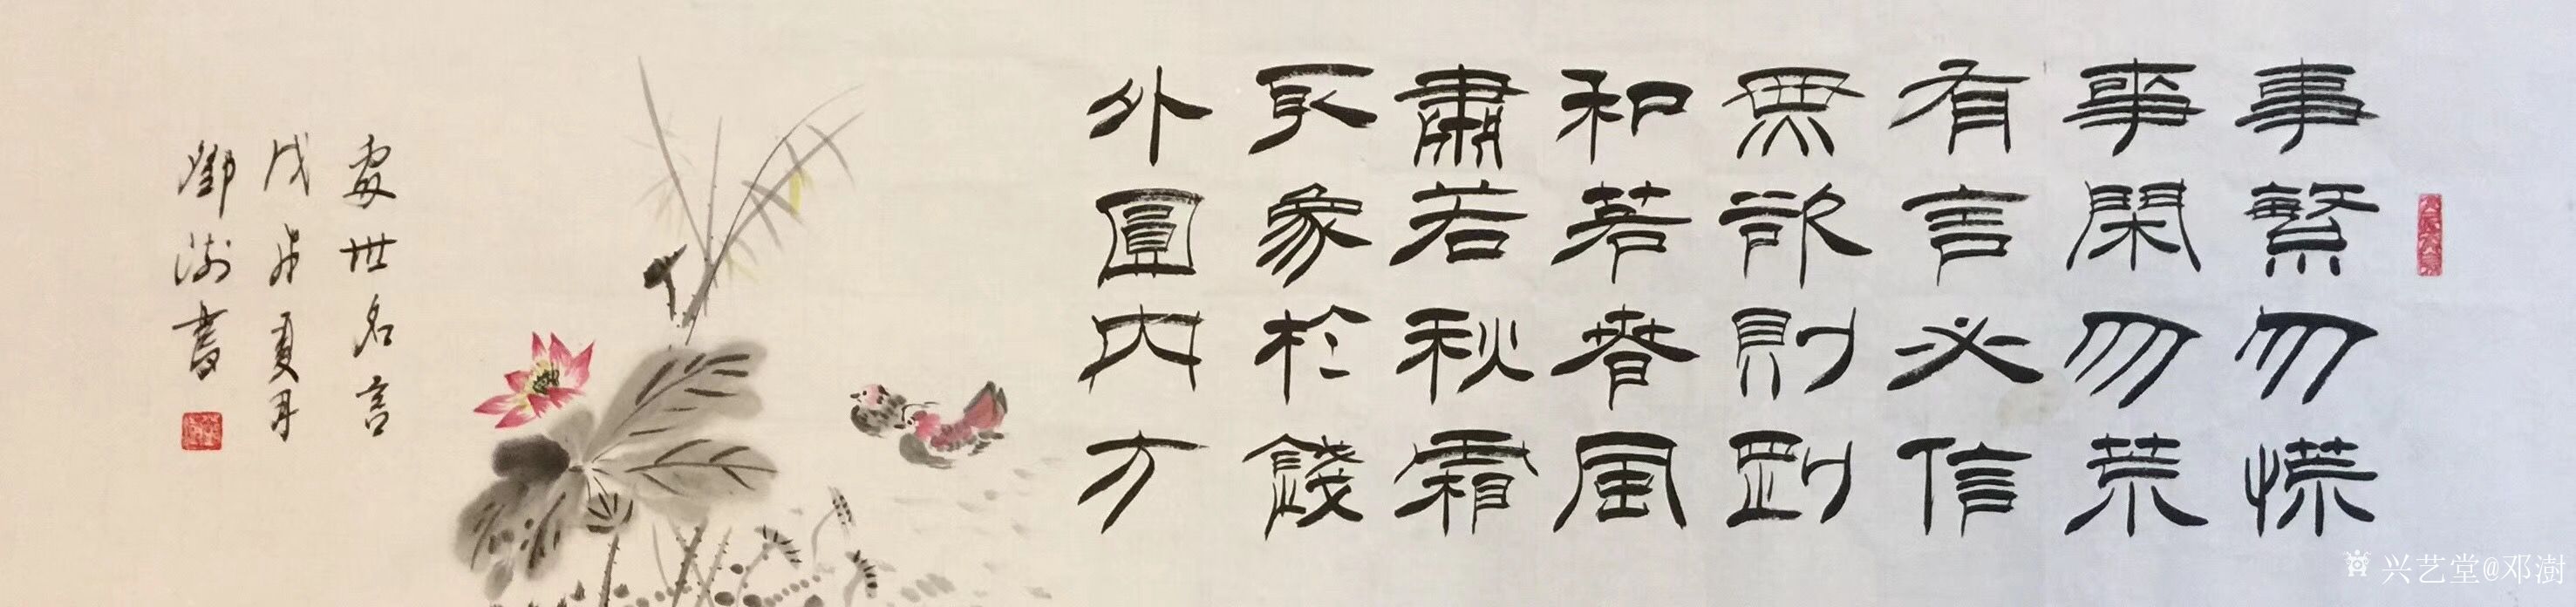 事繁勿慌
事閑勿荒
有言必信
無欲則剛
和若春風
肅若秋霜
取象於錢
外圓内方
處世名言
戊戌夏月
鄧澍書
兴艺堂@邓澍